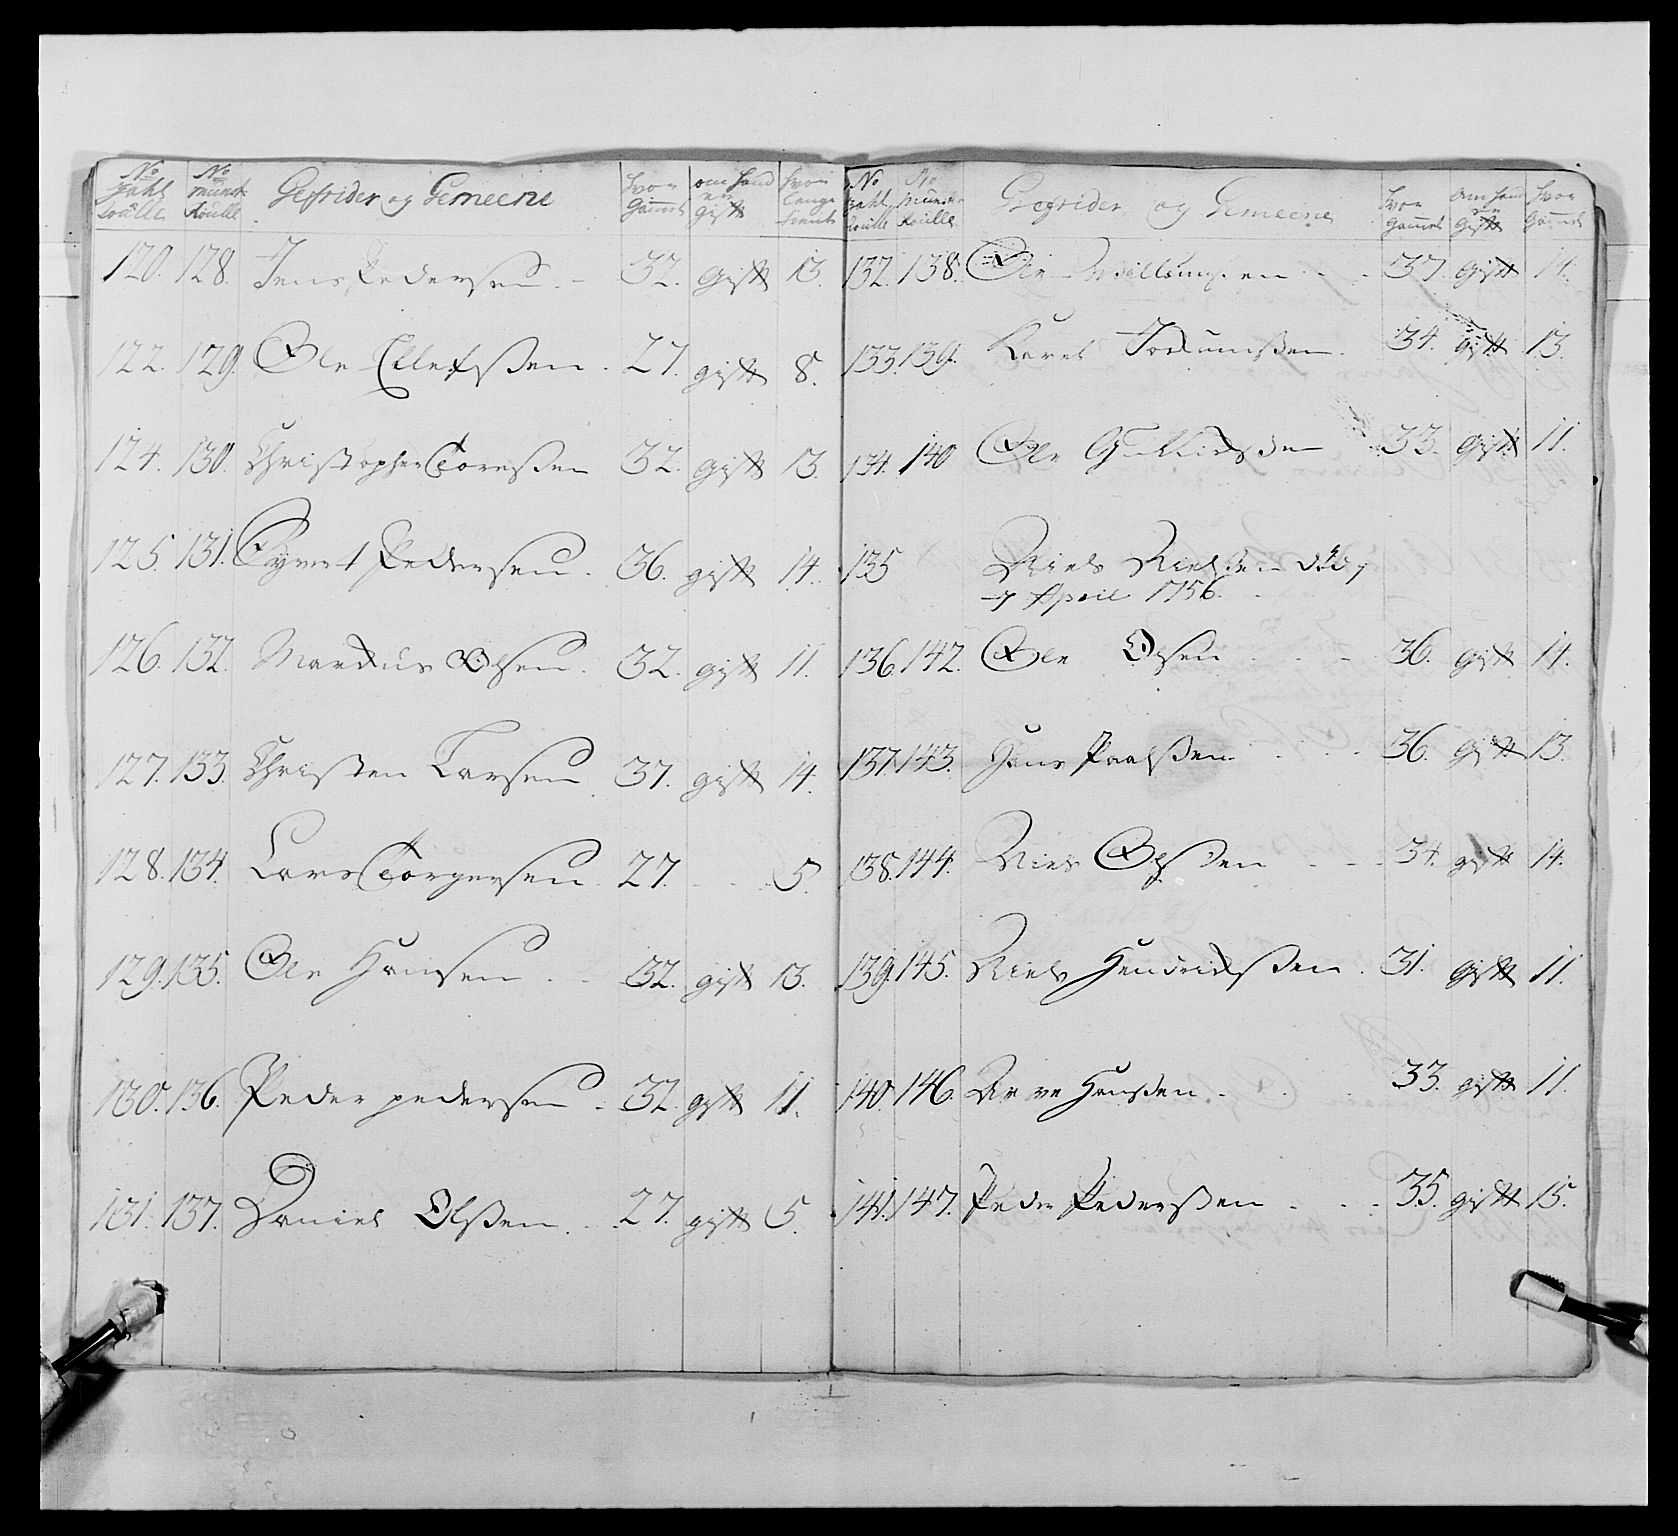 No Zahl Roulle No Munst. Roulle Gefrider og Gemeene hvor Gammel om hand er Gift hvor lange tient
120. 128. Jens Pedersen. 32. Gift 13.
122. 129. Ole Ellefssen. 27. gift 8.
124. 130. Christopher Toressen 32. gift 13.
125. 131. Pedersen. 36. gift 14.
126. 132. Marcus Olsen. 32. gift 11.
127. 133. Christen Larsen 37. gift 14.
128. 134. Lars Torgersen. 27. 5.
129. 135. Ole Hansen. 32. gift 13.
130. 136. Peder pedersen. 32. gift 11.
131. 137. Daniel Olssen. 27. gift 5.
No Zahl Roulle No Munst. Roulle Gefrider og Gemeene hvor Gammel om hand er Gift hvor Gammel
132. 138. Ole 37. Gift 11.
133. 139. 34. gift 13.
134. 140 Ole 33. Gift 11.
135 Niels Nielssen død
7 April 1756.
136. 142. Ole Olsen 36. gift 14.
137. 143. Hans Paalssen. 36. gift 13.
138. 144. Niels Olssen 34. gift 14.
139. 145. Niels Hendrickssen. 31. gift 11.
140. 146. Hanssen. 33. gift 11.
141. 147. Peder Pederssen 35. gift 15.